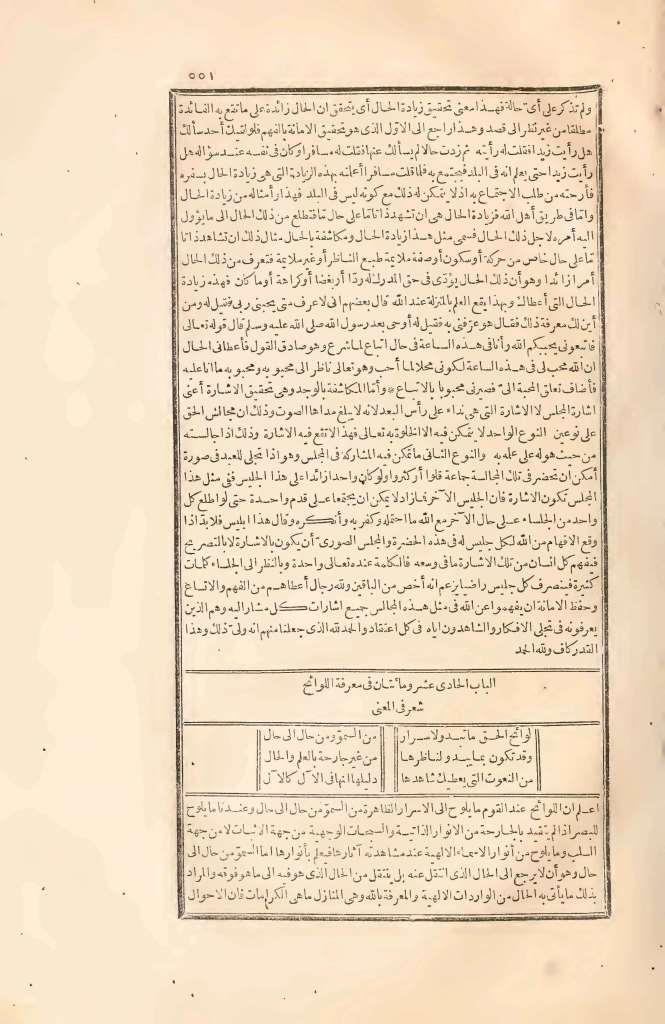 ٥٥١
ولم تذكر على أى حالة فهذا معنى تحقيق زيادة الحال أى يتحقق ان الحال زائدة على ما تقع به الفائدة
مطلقا من غير نظر الى قصد وهذا راجع الى الاول الذى هو تحقيق الامانة بالفهم فلو لقيك أحد سألك
هل رأيت زيدا فقلت له رأيته ثم زدت حالا لم يسألك عنها فقلت له مسافرا وكان فى نفسه عند سؤاله هل
رأيت زيدا حتى يعلم انه فى البلد فيجتمع به فلما قلت مسافرا أعلمته بهذه الزيادة التى هى زيادة الحال بسفره
فأرحته من طلب الاجتماع به اذ لا يتمكن له ذلك مع كونه ليس فى البلد فهذا وأمثاله من زيادة الحال
وأما فى طريق أهل الله فزيادة الحال هى ان تشهد ذاتا ما على حال ما فتطلع من ذلك الحال الى ما يؤول
اليه أمره لاجل ذلك الحال فسمى مثل هذا زيادة الحال ومكاشفة بالحال مثال ذلك ان تشاهد ذاتا
ما على حال خاص من حركة أو سكون أو صفة ملايمة طبع الناظر أو غير ملايمة فتعرف من ذلك الحال
أمرا زائدا وهو أن ذلك الحال يؤدى فى حق المدرك له ردا أو بغضا أو كراهة أو ما كان فهذه زيادة
الحال التى أعطاك وبهذا يقع العلم بالمنزلة عند الله قال بعضهم انى لاعرف متى يحبنى ربى فقيل له ومن
أين لك معرفة ذلك فقال هو عرفنى به فقيل له أوحى بعد رسول الله صلى الله عليه وسلم قال قوله تعالى
فاتبعونى يحببكم الله وأنا فى هذه الساعة فى حال اتباع لما شرع وهو صادق القول فأعطانى الحال
ان الله محب لى فى هذه الساعة لكونى محلا لما أحب وهو تعالى ناظر الى محبوبه ومحبوبه ما أنا عليه
فأضاف تعلق المحبة الىّ فصيرنى محبوبا بالاتباع * وأما المكاشفة بالوجد وهى تحقيق الاشارة أعنى
اشارة المجلس لا الاشارة التى هى نداء على رأس البعد لانه لا يبلغ مداها الصوت وذلك ان مجالس الحق
على نوعين النوع الواحد لا يتمكن فيه الا الخلوة به تعالى فهذا لا تقع فيه الاشارة وذلك اذا جالسته
من حيث هو له على علمه به والنوع الثانى ما تمكن فيه المشاركة فى المجلس وهو اذا تجلى للعبد فى صورة
أمكن ان تحضر فى تلك المجالسة جماعة قلوا أو كثروا ولو كان واحدا زائدا على هذا الجليس ففى مثل هذا
المجلس تكون الاشارة فان الجليس الآخر فما زاد لا يمكن ان يجتمعا على قدم واحدة حتى لو اطلع كل
واحد من الجلساء على حال الآخر مع الله ما احتمله وكفر به وأنكره وقال هذا ابليس فلا بد اذا
وقع الافهام من الله لكل جليس له فى هذه الحضرة والمجلس الصورى أن يكون بالاشارة لا بالتصريح
فيفهم كل انسان من تلك الاشارة ما فى وسعه فالكلمة عنده تعالى واحدة وبالنظر الى الجلساء كلمات
كثيرة فينصرف كل جليس راضيا يزعم انه أخص من الباقين ولله رجال أعطاهم من الفهم والاتساع
وحفظ الامانة ان يفهموا عن الله فى مثل هذه المجالس جميع اشارات كل مشار اليه وهم الذين
يعرفونه فى تجلى الافكار والشاهدون اياه فى كل اعتقاد والحمد لله الذى جعلنا منهم انه ولىّ ذلك وهذا
القدر كاف ولله الحمد
الباب الحادى عشر ومائتان فى معرفة اللوائح
شعر فى المعنى
لوائح الحق ما تبدو لاسرار من السموّ ومن حال الى حال
وقد تكون بما يبدو لناظرها من غير جارحة بالعلم والحال
من النعوت التى يعطيك شاهدها دليلها انها فى الآل كالآل
اعلم ان اللوائح عند القوم ما يلوح الى الاسرار الظاهرة من السموّ من حال الى حال وعندنا ما يلوح
للبصر اذا لم يتقيد بالجارحة من الانوار الذاتية والسبحات الوجهية من جهة الاثبات لا من جهة
السلب وما يلوح من أنوار الاسماء الالهية عند مشاهدة آثارها فيعلم بأنوارها اما السموّ من حال الى
حال وهو أن لا يرجع الى الحال الذى انتقل عنه بل ينتقل من الحال الذى هو فيه الى ما هو فوقه والمراد
بذلك ما يأتى به الحال من الواردات الالهية والمعرفة بالله وهى المنازل ما هى الكرامات فان الاحوال